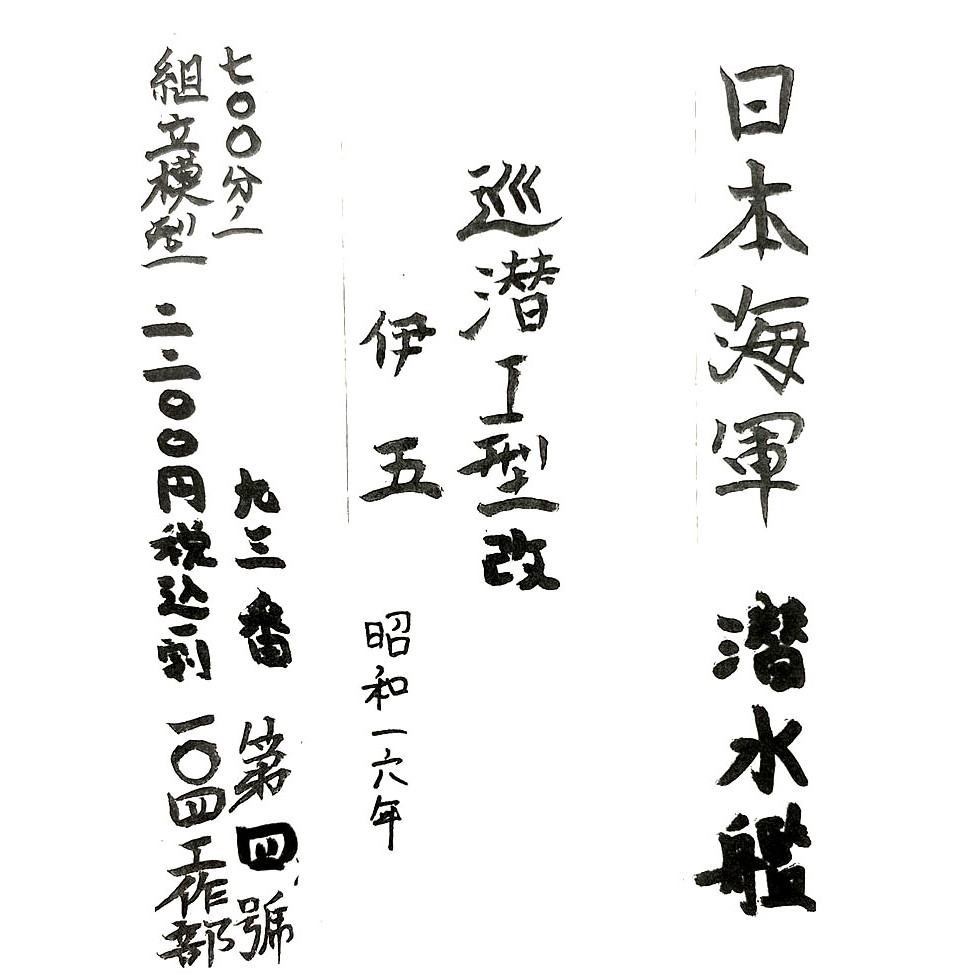 日本海軍 潜水艦
巡潜工型改
伊五 昭和一六年
七〇〇分ノ一
九三番 第四號
組立模型 二二〇〇円税込
一〇四工作部